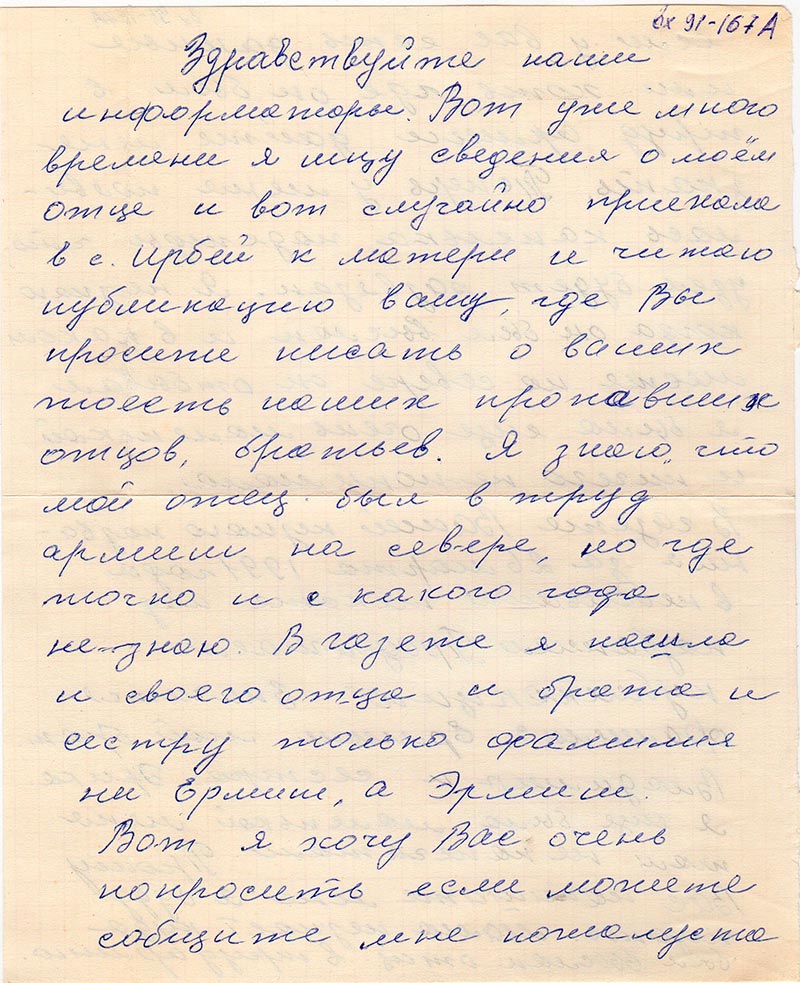 вх 91-167А
Здравствуйте наши
информаторы. Вот уже много
времени я ищу сведения о моём
отце и вот случайно приехала
в с. Ирбей к матери и читаю
публикацию вашу, где Вы
просите писать о ваших
тоесть наших пропавших
отцов, братьев. Я знаю, что
мой отец был в труд
армии на севере, но где
точно и с какого года
не знаю. В газете я нашла
и своего отца и брата и
сестру только фамилия
ни Ермиш, а Эрмиш.
Вот я хочу Вас очень
попросить если можете
собщите мне пожалуста